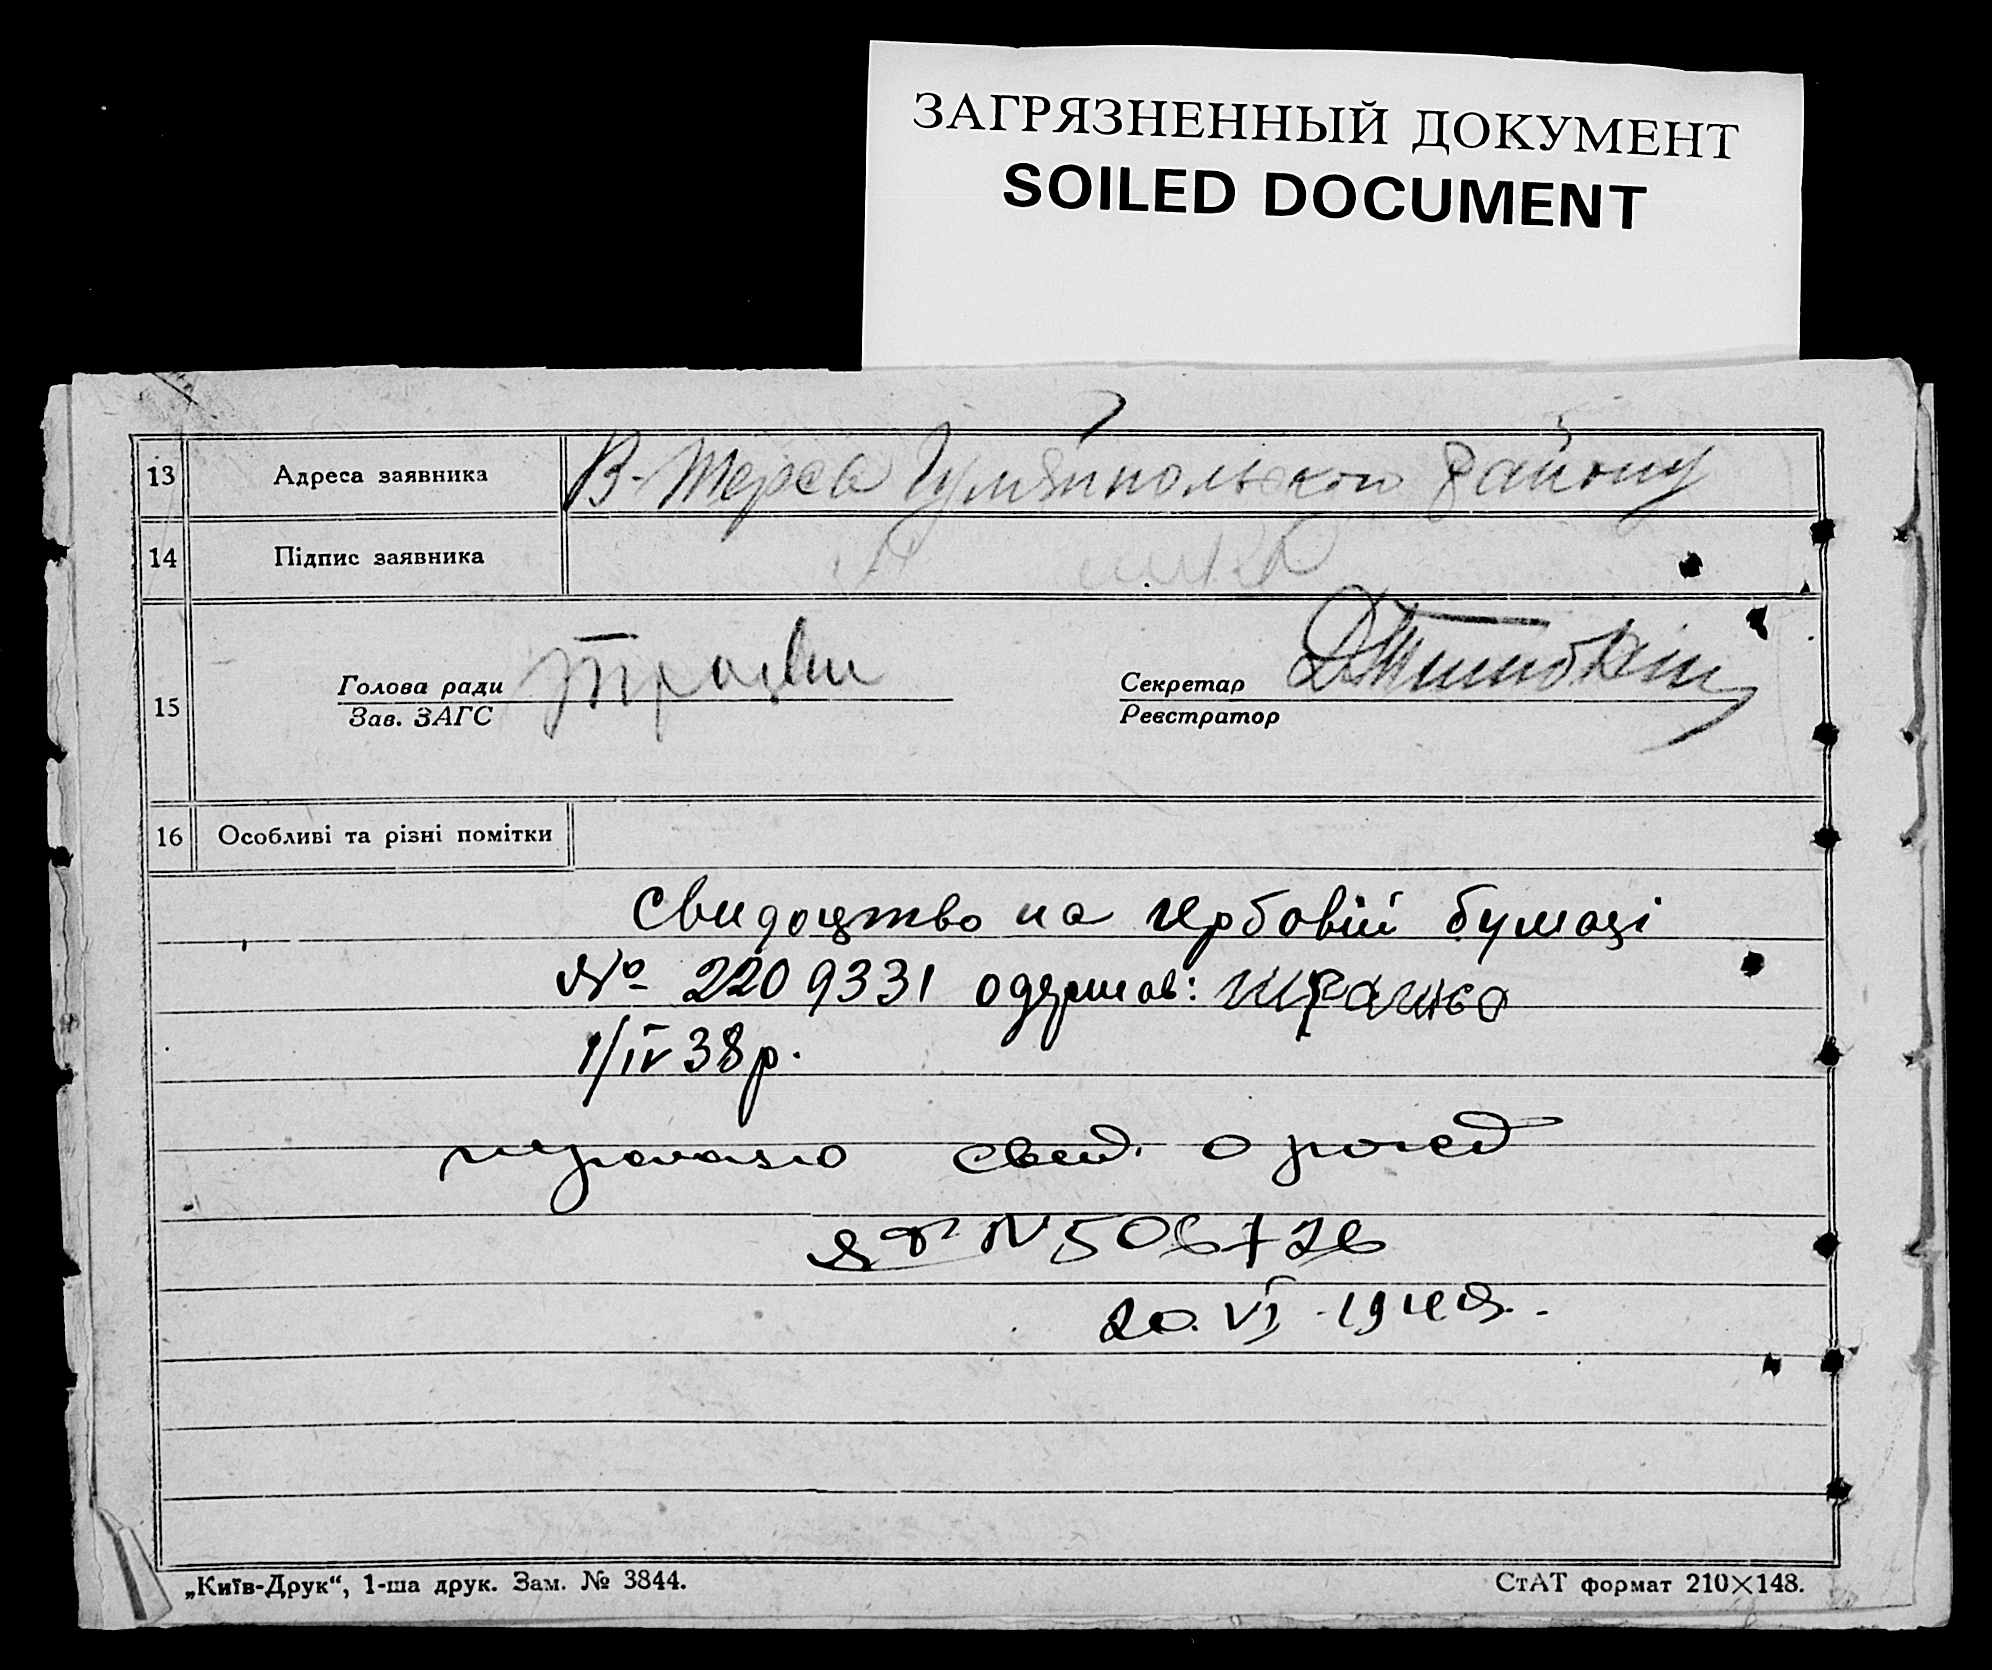 ЗАГРЯЗНЕННЫЙ ДОКУМЕНТ
SOILED DOCUMENT
13 Адреса заявника В-Терса Гуляйпольськои району
14 Підпис заявника
15 Голова ради Секретар
Зав. ЗАГС Реєстратор
16 Особливі та різні помітки
Свидоцтво на гербовій бумаці
№ 2209331 одержав:
1/IV 38р.
свид. о рожд
N 506726
20. VI
„Київ-Друк“, 1-ша друк. Зам. № 3844. СтАТ формат 210×148.